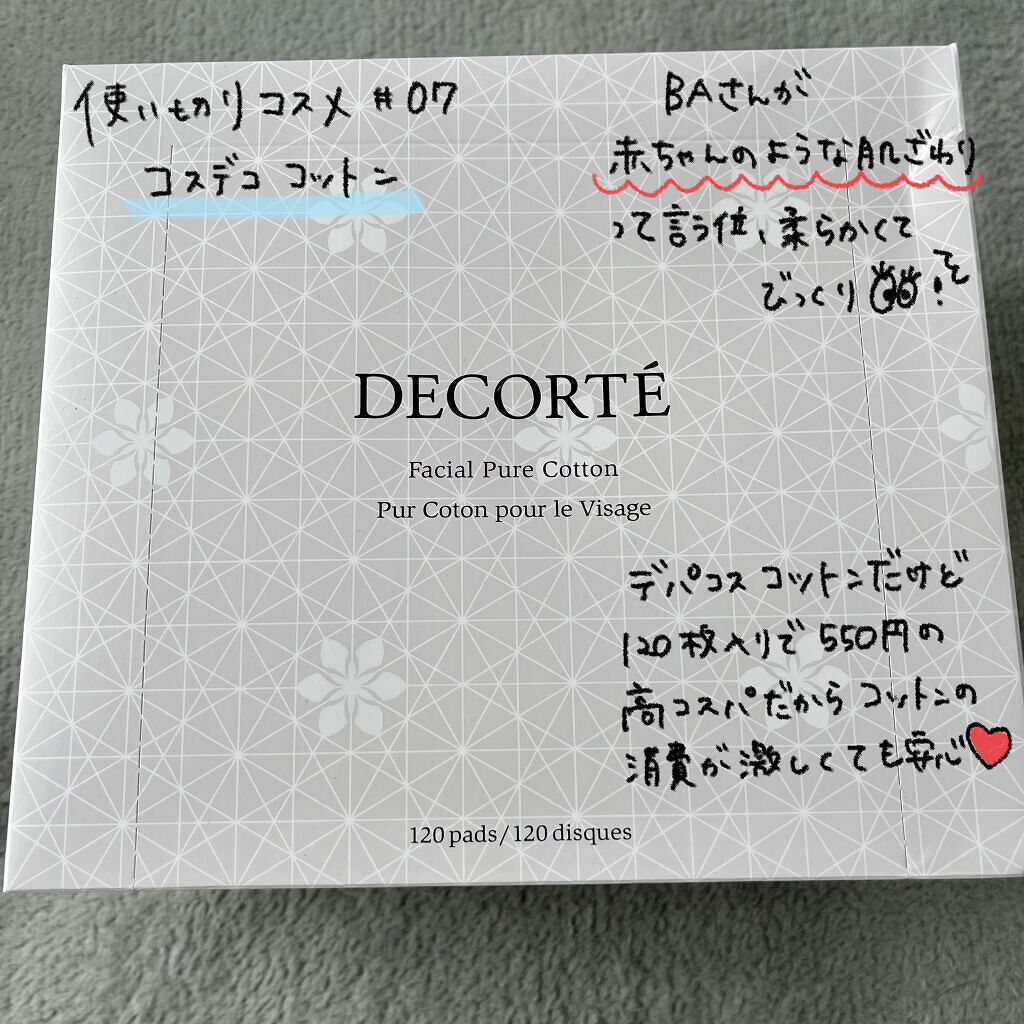 使い切りコスメ #07
コスデコ コットン
BAさんが
赤ちゃんのような肌ざわり
って言う位、柔らかくて
びっくり!
DECORTÉ
Facial Pure Cotton
Pur Coton pour le Visage
デパコス コットンだけど
120枚入りで550円の
高コスパだから コットンの
消費が激しくても安心
120 pads/120 disques